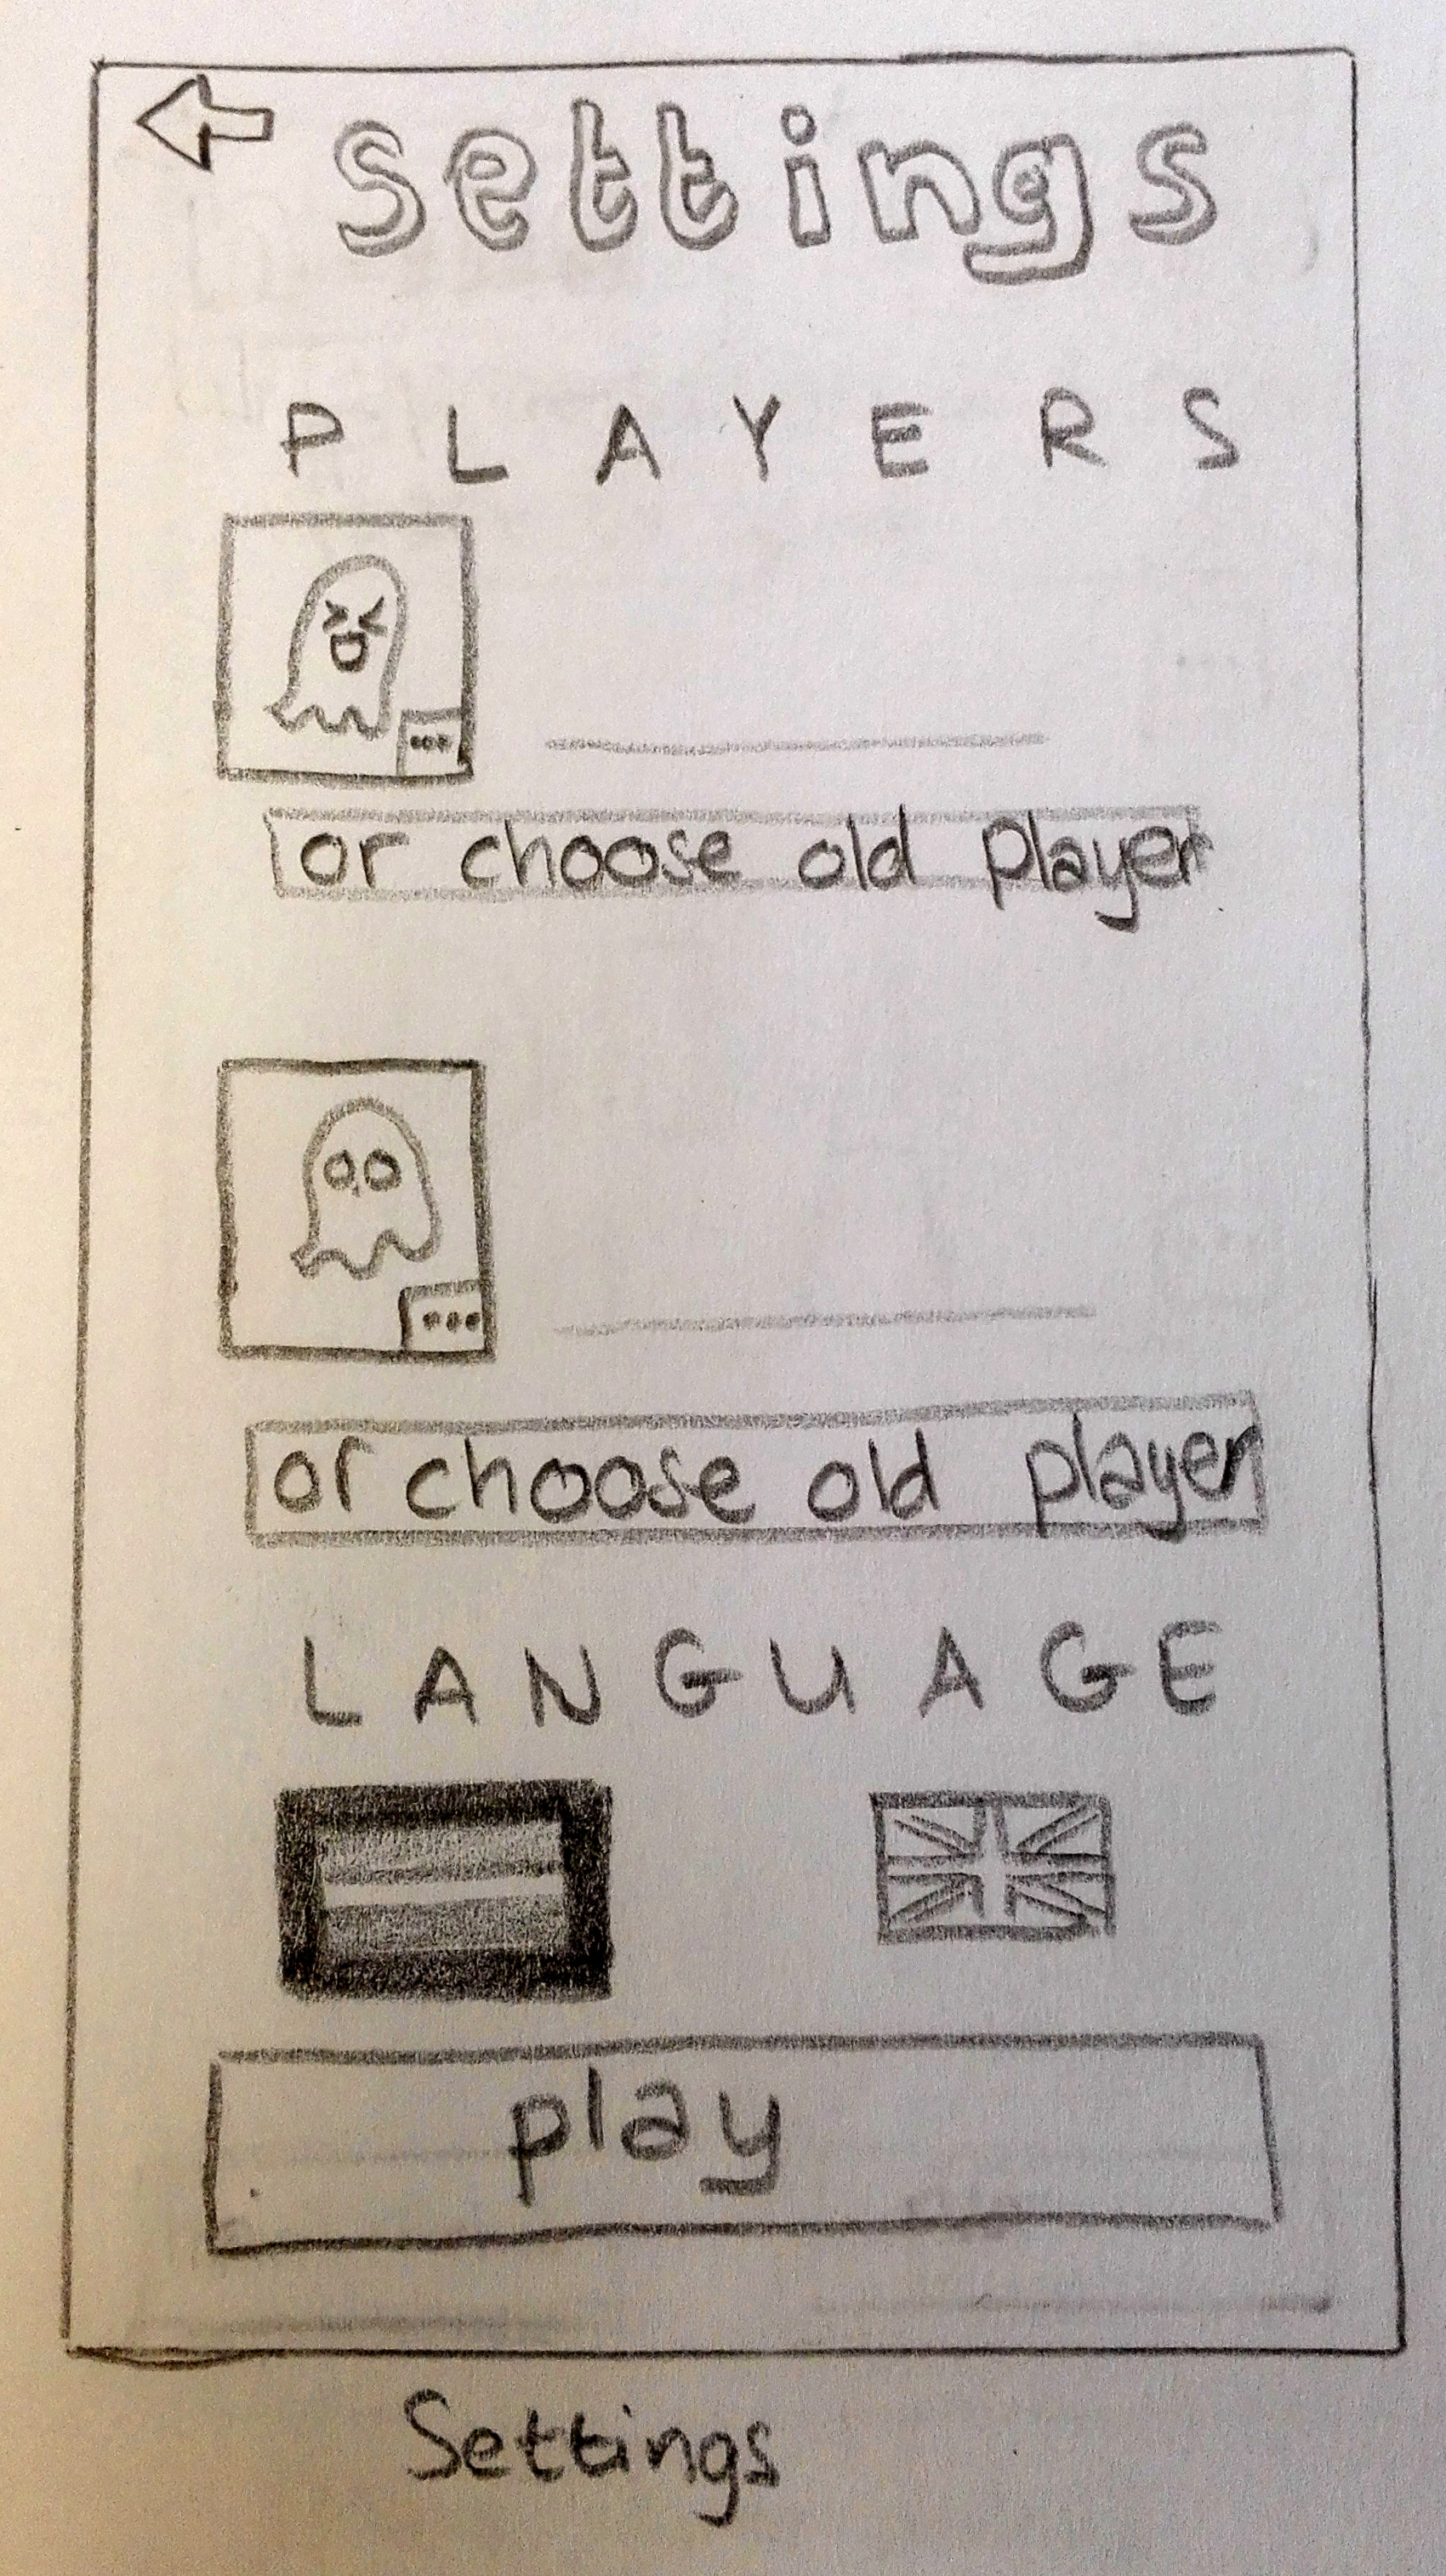 settings
PLAYERS
...
or choose old player
...
or choose old player
LANGUAGE
play
Settings